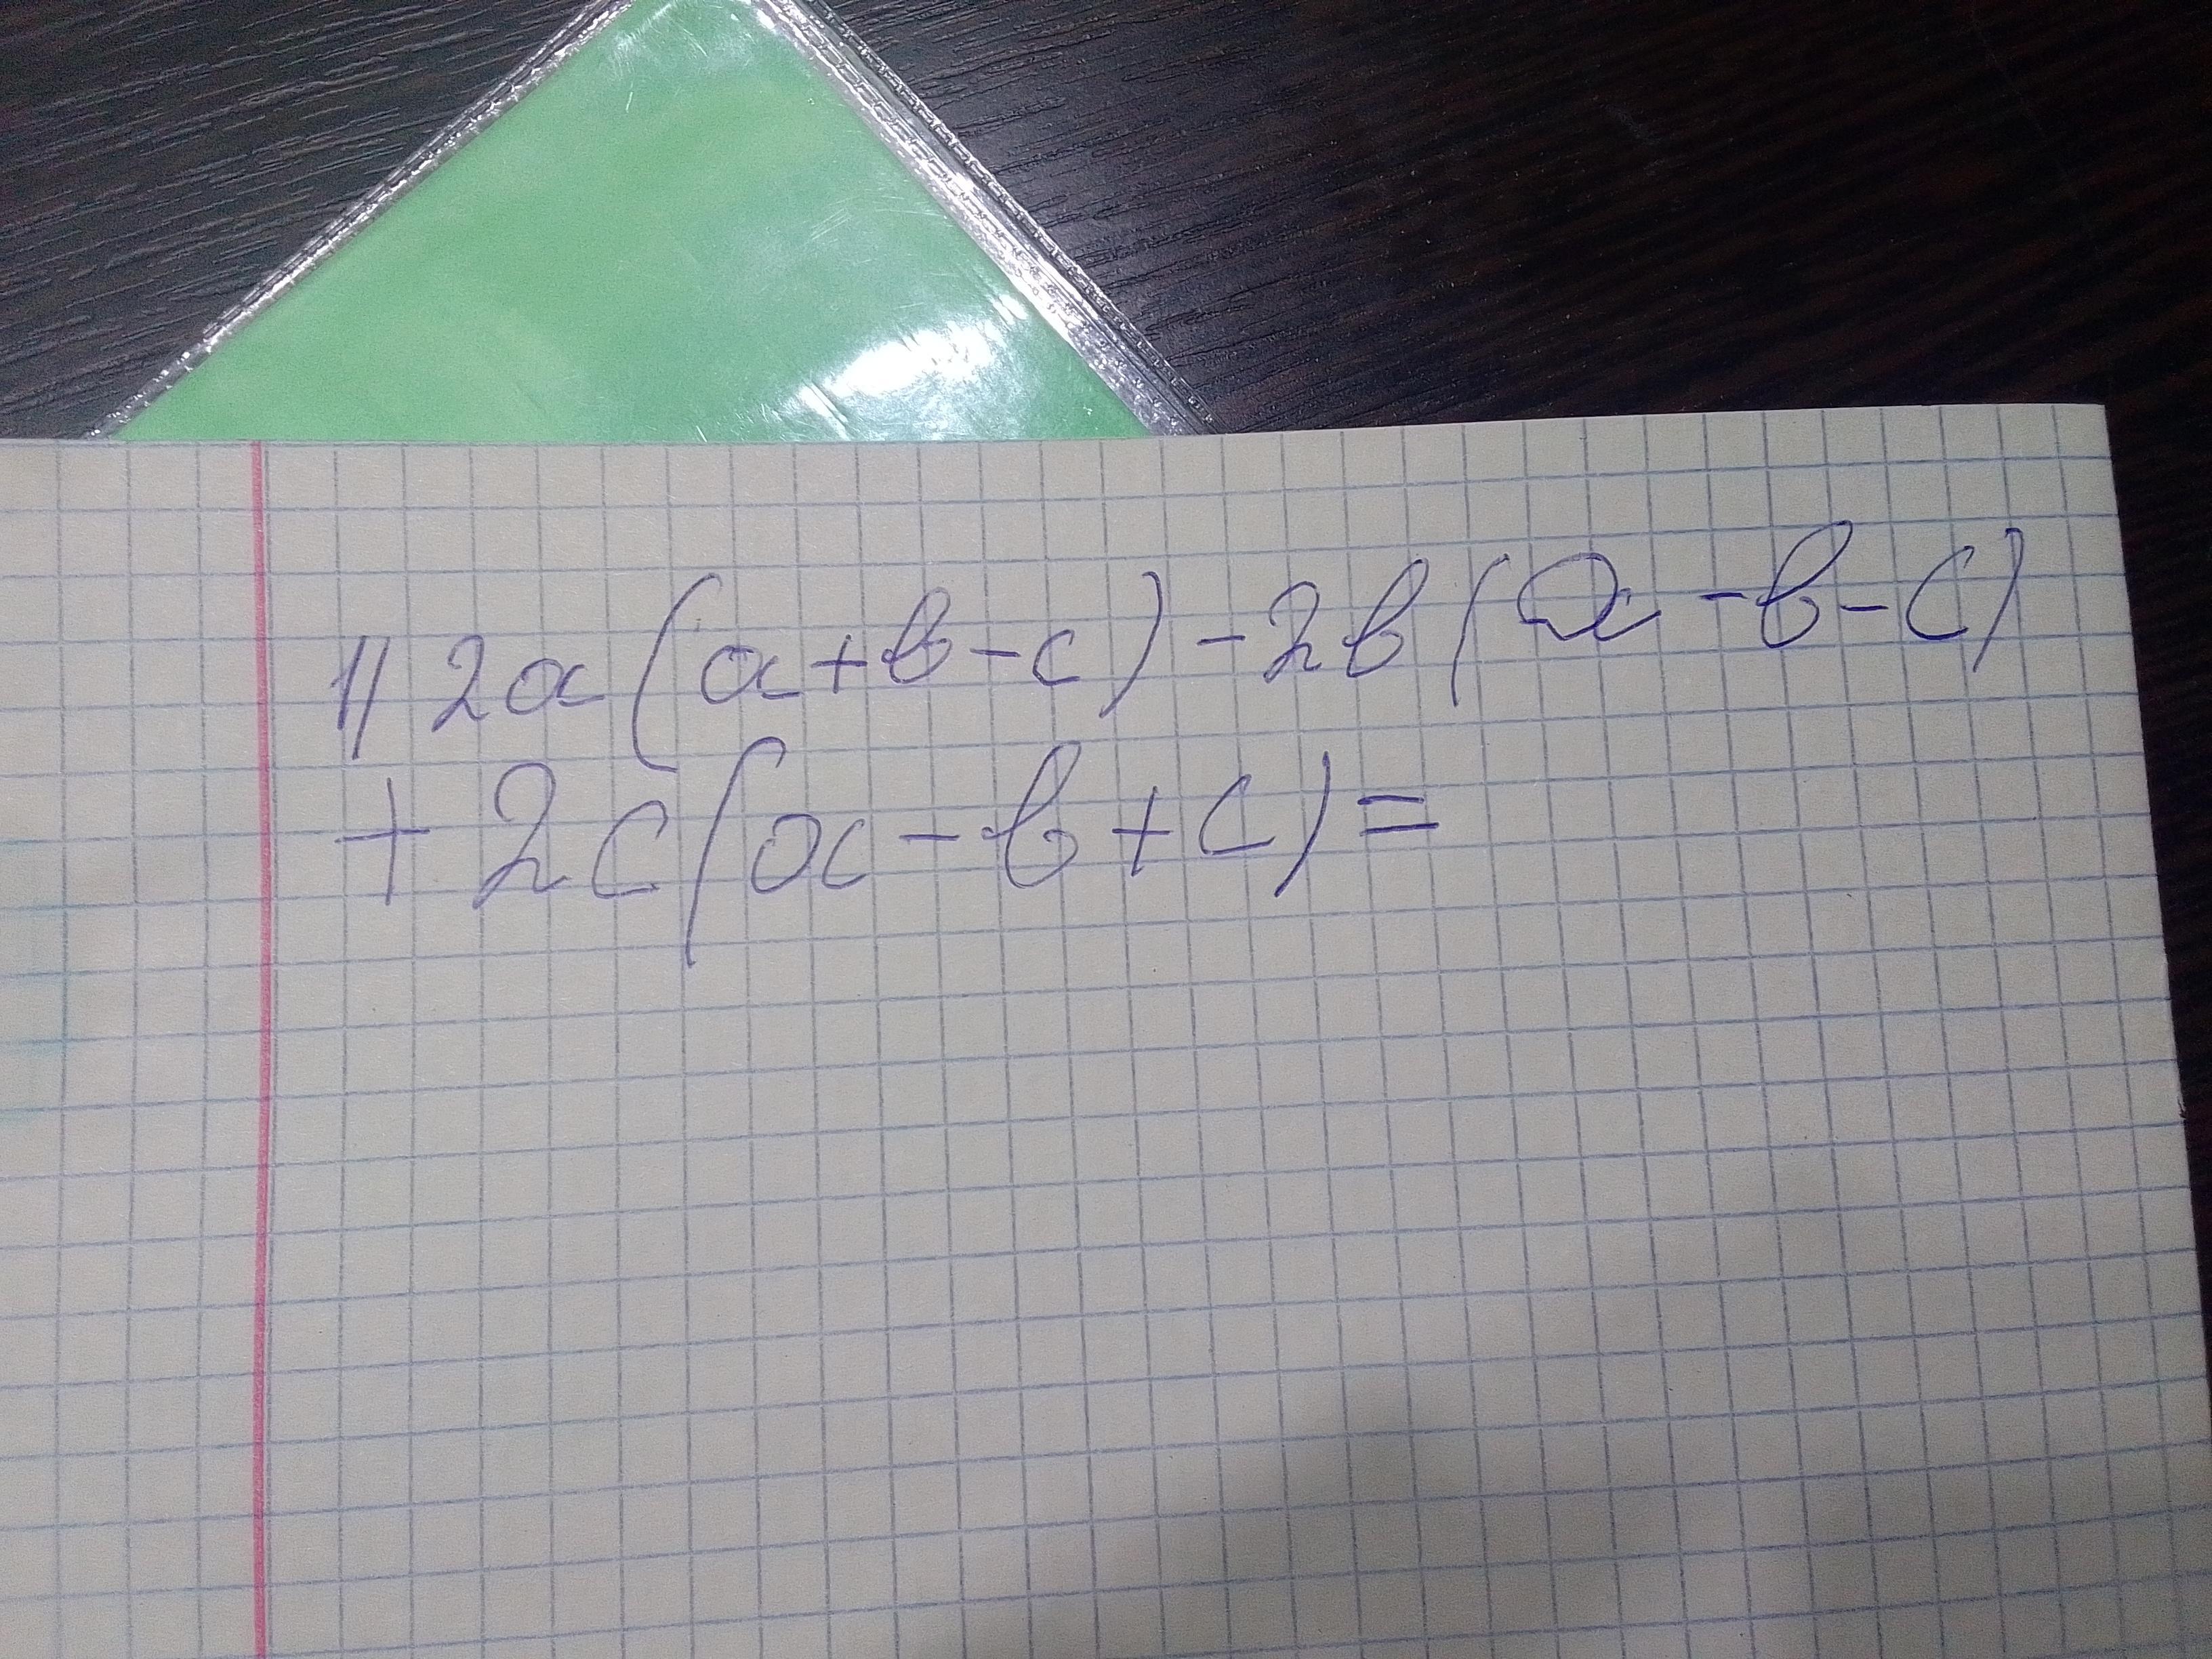 1) 2a(a+b-c)-2b(a-b-c)
+2c(a-b+c)=